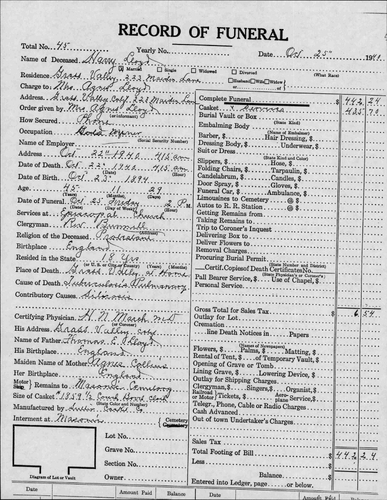 RECORD OF FUNERAL
Total No. 45 Yearly No. Date Oct 25 1940
Name of Deceased Harry Lloyd
Married Single Widowed Divorced (What Race)
Residence Grass Valley, 223 Marden Lane Husband Wife Widow
Charge to Mrs Agnes Lloyd
Address Grass Valley Calif 223
Order given by Mrs Agnes Lloyd
How Secured Phone
Occupation Gold Miner
(Social Security Number)
Name of Employer
Address Oct 22nd 1940 4:15 am
Date of Death Oct 22 1940 4:15 am
Date of Birth Oct 23 1894
Age 45 11 29
Date of Funeral Oct 25 Friday 2 P.M.
Services at Episcopal Church
Clergyman, Rev. Bummell
Religion of the Deceased Protestant
Birthplace England
Resided in the State 18 Yrs
Place of Death Grass Valley at Home
Cause of Death Tuberculosis Pulmonary
Contributory Causes Silicosis
Certifying Physician H. N. Marsh M.D.
His Address Grass Valley, Calif
Name of Father Thomas E. Lloyd
His Birthplace England
Maiden Name of Mother Agnes Collins
Her Birthplace England
Remains to Masonic Cemetery
Size of Casket
Manufactured by
Interment at Masonic Cemetery
Lot No.
Grave No.
Section No.
Owner
Diagram of Lot or Vault
Complete Funeral $ 442 24
Casket & Services 425 70
Burial Vault or Box
(State Kind)
Embalming Body
Barber, $ Hair Dressing, $
Dressing Body, $ Underwear, $
Suit or Dress
(State Kind and Color)
Slippers, $ Hose, $
Folding Chairs, $ Tarpaulin, $
Candelabrum, $ Candles, $
Door Spray, $ Gloves, $
Funeral Car, $ Ambulance, $
Limousines to Cemetery @ $
Autos to R. R. Station @ $
Getting Remains from
Taking Remains to
Trip to Coroner's Inquest
Delivering Box to
Deliver Flowers to
Removal Charges
Procuring Burial Permit
(State Number and District)
Certif. Copies of Death Certificates No.
Pall Bearer Service, $ Use of Chapel, $
Personal Service
Gross Total for Sales Tax $ 6 54
Outlay for Lot
Cremation
line Death Notices in Papers
(Names of Newspapers)
Flowers, $ Palms, $ Matting, $
Rental of Tent, $ of Temporary Vault, $
Opening of Grave or Tomb
Lining Grave, $ Lowering Device, $
Outlay for Shipping Charges
Clergyman, $ Singers, $ Organist, $
Tickets, $ Service, $
Telegr., Phone, Cable or Radio Charges
Cash Advanced
Out of town Undertaker's Charges
Sales Tax
Total Footing of Bill $ 442 24
Less
Balance $
Entered into Ledger, page or below.
Date Amount Paid Balance Date Amount Paid Balance